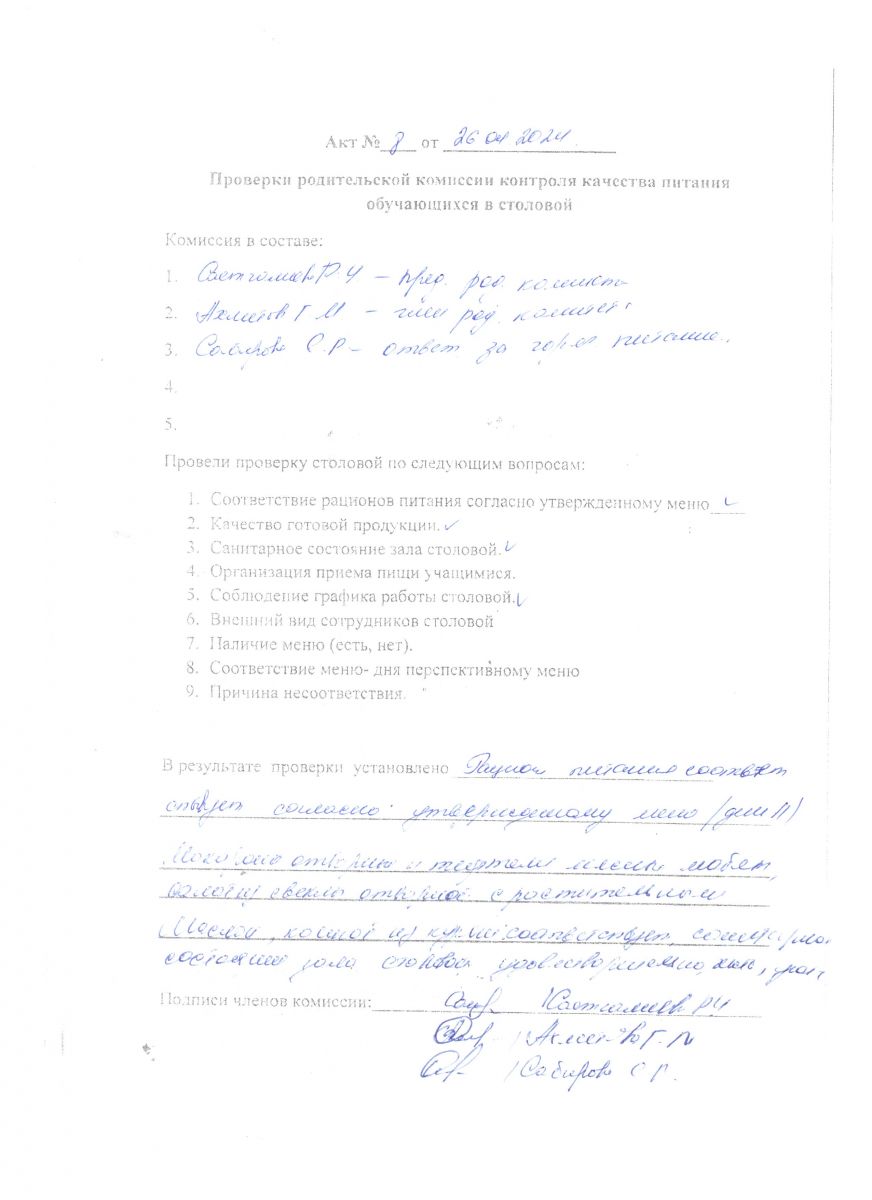 Акт № 8 от 26 04 2024.
Проверки родительской комиссии контроля качества питания
обучающихся в столовой
Комиссия в составе:
1. Р. И – пред. род.
2. Ахметов Г М – член род. комитета
3. Сабирова С.Р – ответ за питание.
4.
5.
Провели проверку столовой по следующим вопросам:
1. Соответствие рационов питания согласно утвержденному меню
2. Качество готовой продукции.
3. Санитарное состояние зала столовой.
4. Организация приема пищи учащимися.
5. Соблюдение графика работы столовой.
6. Внешний вид сотрудников столовой
7. Наличие меню (есть, нет).
8. Соответствие меню- дня перспективному меню
9. Причина несоответствия.
В результате проверки установлено Рацион питания соответ
ствует согласно утвержденному меню
отварные и тефтели
свеклы отварной с растительным
маслом, компот из соответствует,
состояние зала столовой удовлетворительно
Подписи членов комиссии: Р И
Г. М
/Сабирова С Р.